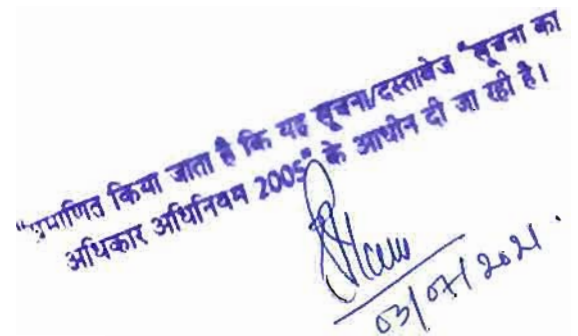 "प्रमाणित किया जाता है कि यह सूचना/दस्तावेज "सूचना का
अधिकार अधिनियम 2005" के आधीन दी जा रही है।
03/07/2021.